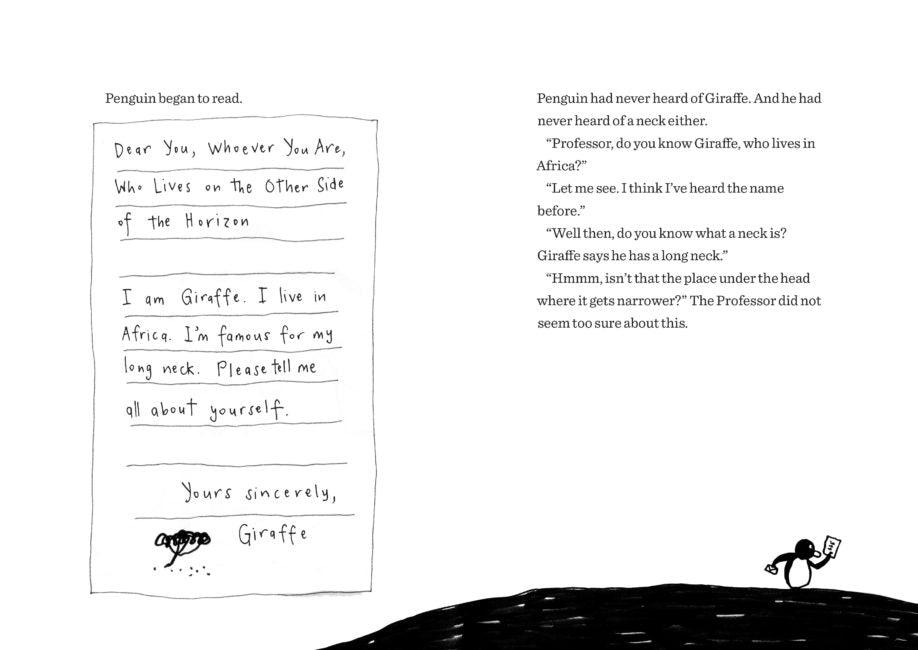 Penguin began to read.
Dear You, Whoever You Are,
Who Lives on the Other Side
of the Horizon
I am Giraffe. I live in
Africa. I'm famous for my
long neck. Please tell me
all about yourself.
Yours sincerely,
Giraffe
Penguin had never heard of Giraffe. And he had
never heard of a neck either.
“Professor, do you know Giraffe, who lives in
Africa?”
“Let me see. I think I’ve heard the name
before.”
“Well then, do you know what a neck is?
Giraffe says he has a long neck.”
“Hmmm, isn’t that the place under the head
where it gets narrower?” The Professor did not
seem too sure about this.